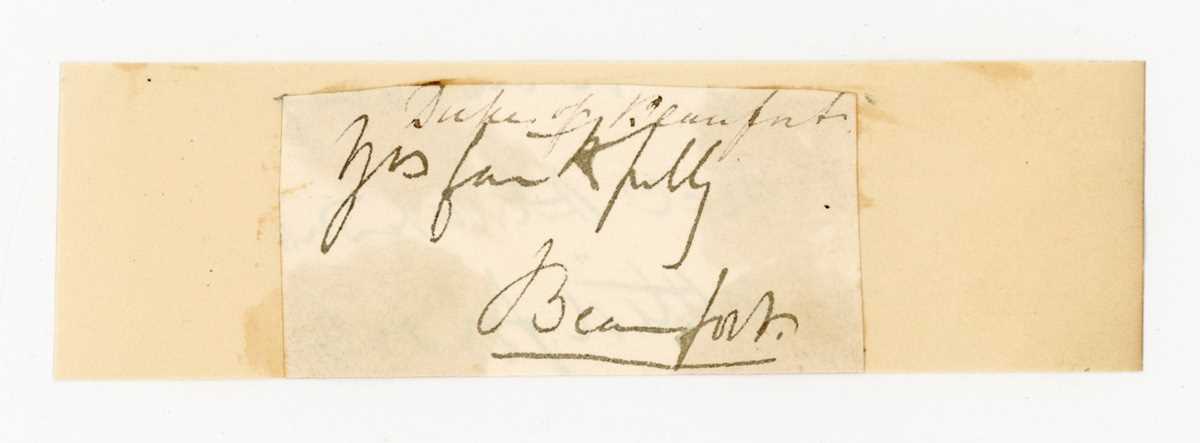 Duke of Beaufort.
Yrs faithfully
Beaufort.